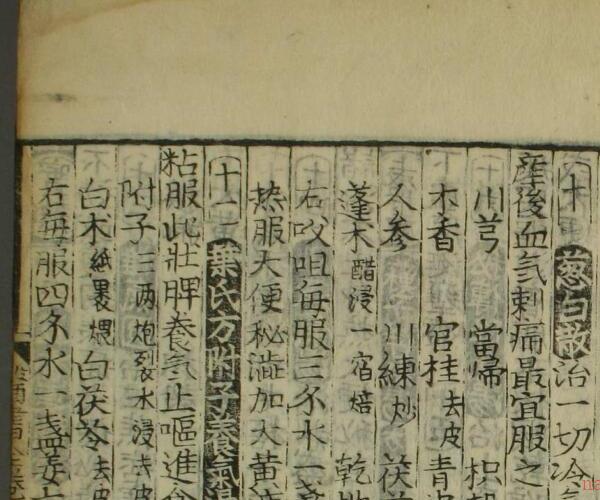 十 葱白散治一切冷
産後血气刺痛最宜服之
川芎 當帰 枳
木香 官桂去皮 青
人参 川練炒 茯
蓬木醋浸一宿焙 乾
右㕮咀每服三分水一盞
热服大便秘澁加大黄
十一 葉氏方附子養氣湯
粘服此壮脾養气止嘔進食
附子三两炮裂水浸去皮
白木紙裹煨 白茯苓去皮
右每服四分水一盞姜七
na